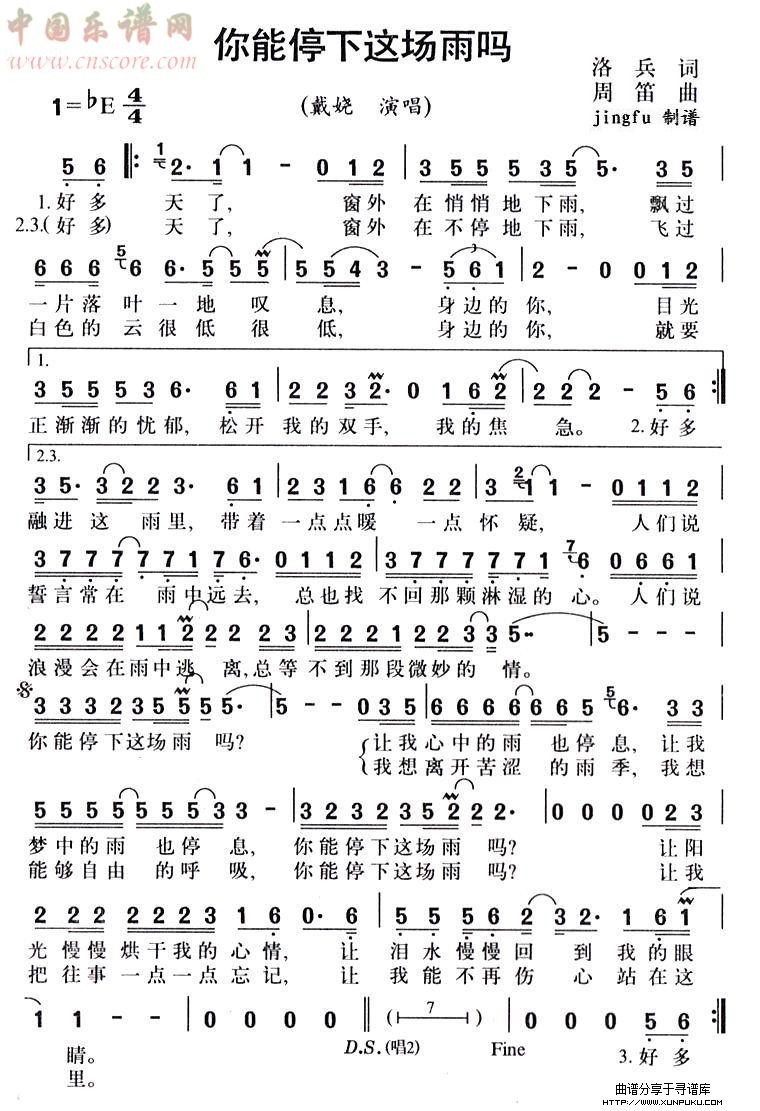 中国乐谱网
www.cnscore.com
你能停下这场雨吗
洛 兵 词
周 笛 曲
jingfu 制谱
1=♭E 4/4
(戴娆 演唱)
5 6 1 2· 1 1 - 0 0 1 2 3 5 5 5 3 5 5· 3 5
1.好多 天了, 窗外 在悄悄地下雨, 飘过
2.3.(好多) 天了, 窗外 在不停地下雨, 飞过
6 6 6 5 6 6· 5 5 5 5 5 4 3 - 5 6 1 2 - 0 0 1 2
一片落叶一地叹息, 身边的你, 目光
白色的云很低很低, 身边的你, 就要
1.
3 5 5 5 3 6· 6 1 2 2 3 2· 0 1 6 2 2 2 2 - 5 6
正渐渐的忧郁, 松开我的双手, 我的焦急。 2.好多
2.3.
3 5· 3 2 2 3· 6 1 2 2 3 1 6 6 2 2 3 2 1 1 - 0 1 1 2
融进这雨里, 带着一点点暖一点怀疑, 人们说
3 7 7 7 7 7 7 1 7 6· 0 1 1 2 3 7 7 7 7 7 7 1 7 6 0 6 6 1
誓言常在雨中远去, 总也找不回那颗淋湿的心。人们说
2 2 2 2 1 1 2 2 2 2 3 1 2 2 2 1 2 2 3 3 5·· 5 - - -
浪漫会在雨中逃离,总等不到那段微妙的情。
3 3 3 2 3 5 5 5 5· 5 - - 0 3 5 6 6 6 6 6 6 6 5 5 6· 3 3
你能停下这场雨吗? 让我心中的雨也停息, 让我
我想离开苦涩的雨季, 我想
5 5 5 5 5 5 5 3 3 - 3 2 3 2 3 5 2 2 2· 0 0 0 0 2 3
梦中的雨也停息, 你能停下这场雨吗? 让阳
能够自由的呼吸, 你能停下这场雨吗? 让我
2 2 2 2 2 2 3 1 6 0· 6 5 5 5 6 2 3 2· 1 6 1
光慢慢烘干我的心情, 让泪水慢慢回到我的眼
把往事一点一点忘记, 让我能不再伤心站在这
1 1 - - 0 0 0 0 (7) 0 0 0 5 6
睛。 D.S.(唱2) Fine 3.好多
里。
曲谱分享于寻谱库
HTTP://WWW.XUNPUKU.COM